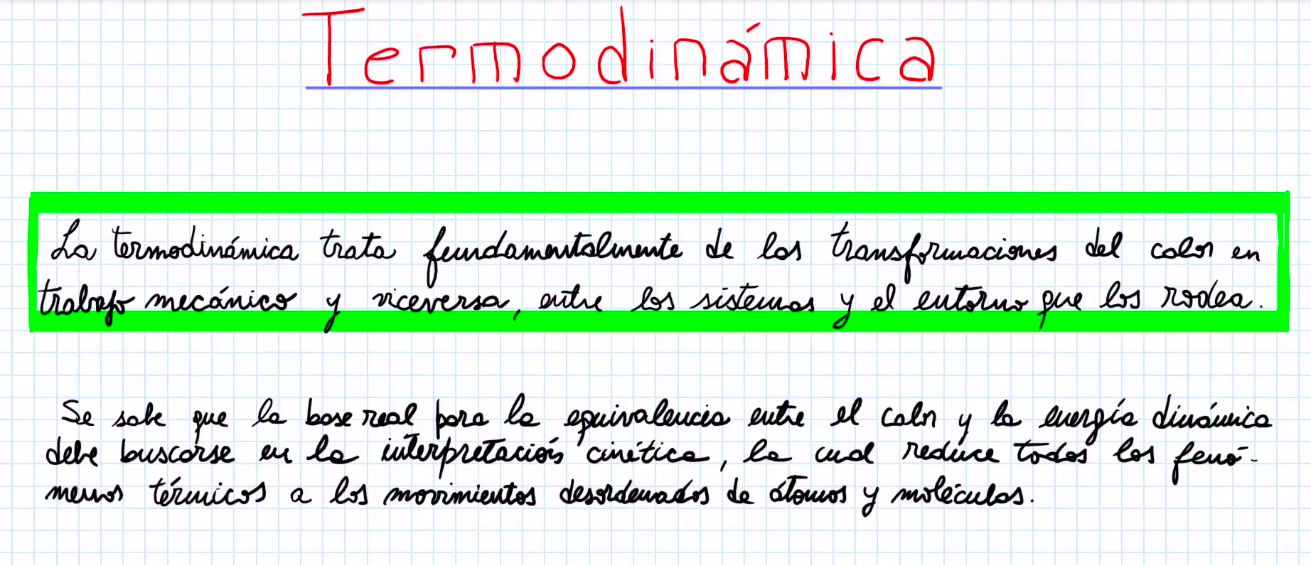 Termodinámica
La termodinámica trata fundamentalmente de las transformaciones del calor en
trabajo mecánico y viceversa, entre los sistemas y el entorno que los rodea.
Se sabe que la base real para la equivalencia entre el calor y la energía dinámica
debe buscarse en la interpretación cinética, la cual reduce todos los fenó-
menos térmicos a los movimientos desordenados de átomos y moléculas.